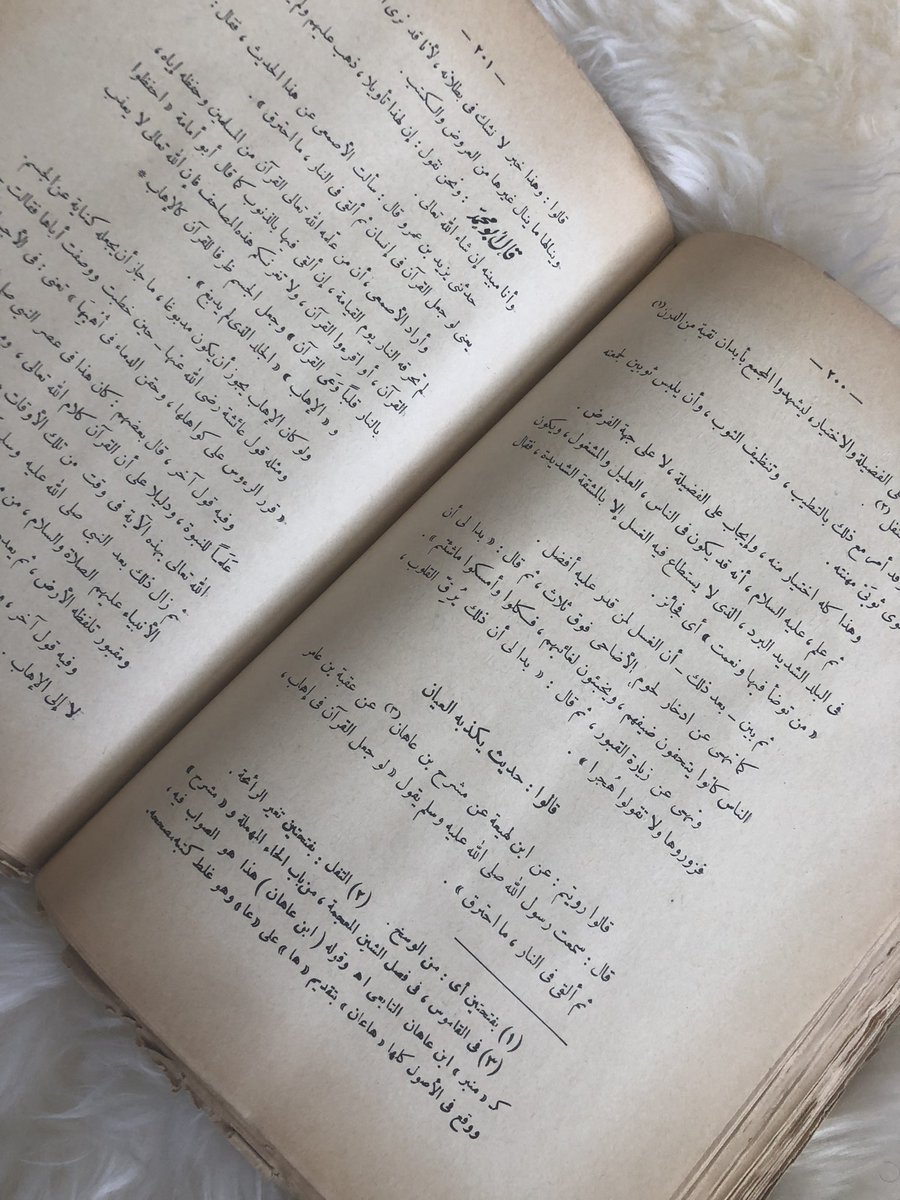 — ٢٠٠ —
الفضيلة والاختيار، ليشهدوا المجمع بأبدان نقية من الدرن(١)
وقد أمر مع ذلك بالتطيب، وتنظيف الثوب، وأن يلبس ثوبين لجمعته
ثوبى مهنته.
وهذا كله اختيار منه، وإيجاب على الفضيلة، لا على جهة الفرض.
ثم علم، عليه السلام، أنه قد يكون فى الناس، العليل والمشغول، ويكون
فى البلد الشديد البرد، الذى لا يستطاع فيه الغسل إلا بالمشقة الشديدة، فقال
« من توضأ فبها ونعمت » أى فجائز.
ثم بين — بعد ذلك — أن الغسل لمن قدر عليه أفضل.
كما نهى عن ادخار لحوم الأضاحى فوق ثلاث، ثم قال: « بدا لى أن
الناس كانوا يتحفون ضيفهم، ويخبئون لغائبهم، فكلوا وأمسكوا ماشئتم ».
ونهى عن زيارة القبور، ثم قال: « بدا لى أن ذلك يُرِقّ القلوب،
فزوروها ولا تقولوا هُجرا ».
قالوا: حديث يكذبه العيان
قالوا رويتم: عن ابن لهيعة عن مشرح بن عاهان(٣) عن عقبة بن عامر
قال: سمعت رسول الله صلى الله عليه وسلم يقول « لو جعل القرآن فى إهاب،
ثم ألقى فى النار، ما احترق ».
(١) بفتحتين أى: من الوسخ. (٢) التفل: بفتحتين تغير الرائحة.
(٣) فى القاموس، فى فصل الشين المعجمة، من باب الحاء المهملة و « مشرح »
كـ « منبر » ابن عاهان التابعى اه وقوله ( ابن عاهان ) هذا هو الصواب فيه،
ووقع فى الأصول كلها « هاعان » بتقديم « ها » على « عا » وهو غلط كتبه مصححه.
— ٢٠١ —
قالوا: وهذا خبر لا نشك فى بطلانه، لأنا قد نرى
وينالها ما ينال غيرها من العروض والكتب.
قال أبو محمد: ونحن نقول: إن لهذا تأويلا، ذهب عليهم
وأنا مبينه إن شاء الله تعالى.
حدثنى يزيد بن عمرو قال: سألت الأصمعى عن هذا الحديث، فقال:
يعنى لو جعل القرآن فى إنسان ثم ألقى فى النار، ما احترق ».
وأراد الأصمعى، أن من علمه الله تعالى القرآن من المسلمين وحفظه إياه،
لم تحرقه النار يوم القيامة، إن ألقى فيها بالذنوب كما قال أبو أمامة « احفظوا
القرآن، أو اقرءوا القرآن، ولا تغرنكم هذه المصاحف فإن الله تعالى لا يعذب
بالنار قلباً وَعَى القرآن » وجعل الجسم ظرفا للقرآن كالإهاب
و « الإهاب » « الجلد الذى لم يدبغ »
ولو كان الإهاب يجوز أن يكون مدبوغا، ما جاز أن يجعله كناية عن الجسم.
ومثله قول عائشة رضى الله عنها — حين خطبت ووصفت أباها فقالت
« قرر الرءوس على كواهلها، وحقن الدماء فى أُهُبِهَا » تعنى: فى الأجساد
وفيه قول آخر، قال بعضهم: كان هذا فى عصر النبى
عَلَماً للنبوة، ودليلا على أن القرآن كلام الله تعالى،
الله تعالى بهذه الآية فى وقت من تلك الأوقات
ثم زال ذلك بعد النبى صلى الله عليه وسلم
الأنبياء عليهم الصلاة والسلام، من
ومقبور تلفظه الأرض، ثم يعدم
وفيه قول آخر، وهو
لا إلى الإهاب.